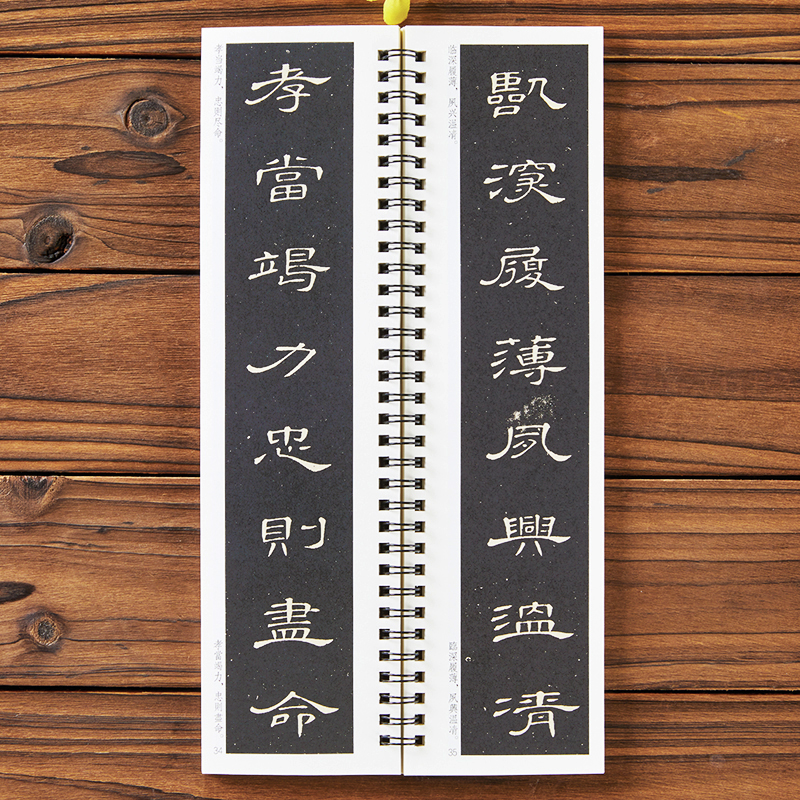 孝当竭力，忠则尽命。
孝當竭力忠則盡命
孝當竭力，忠則盡命。
34
临深履薄，夙兴温凊。
臨深履薄夙興温凊
臨深履薄，夙興温凊。
35